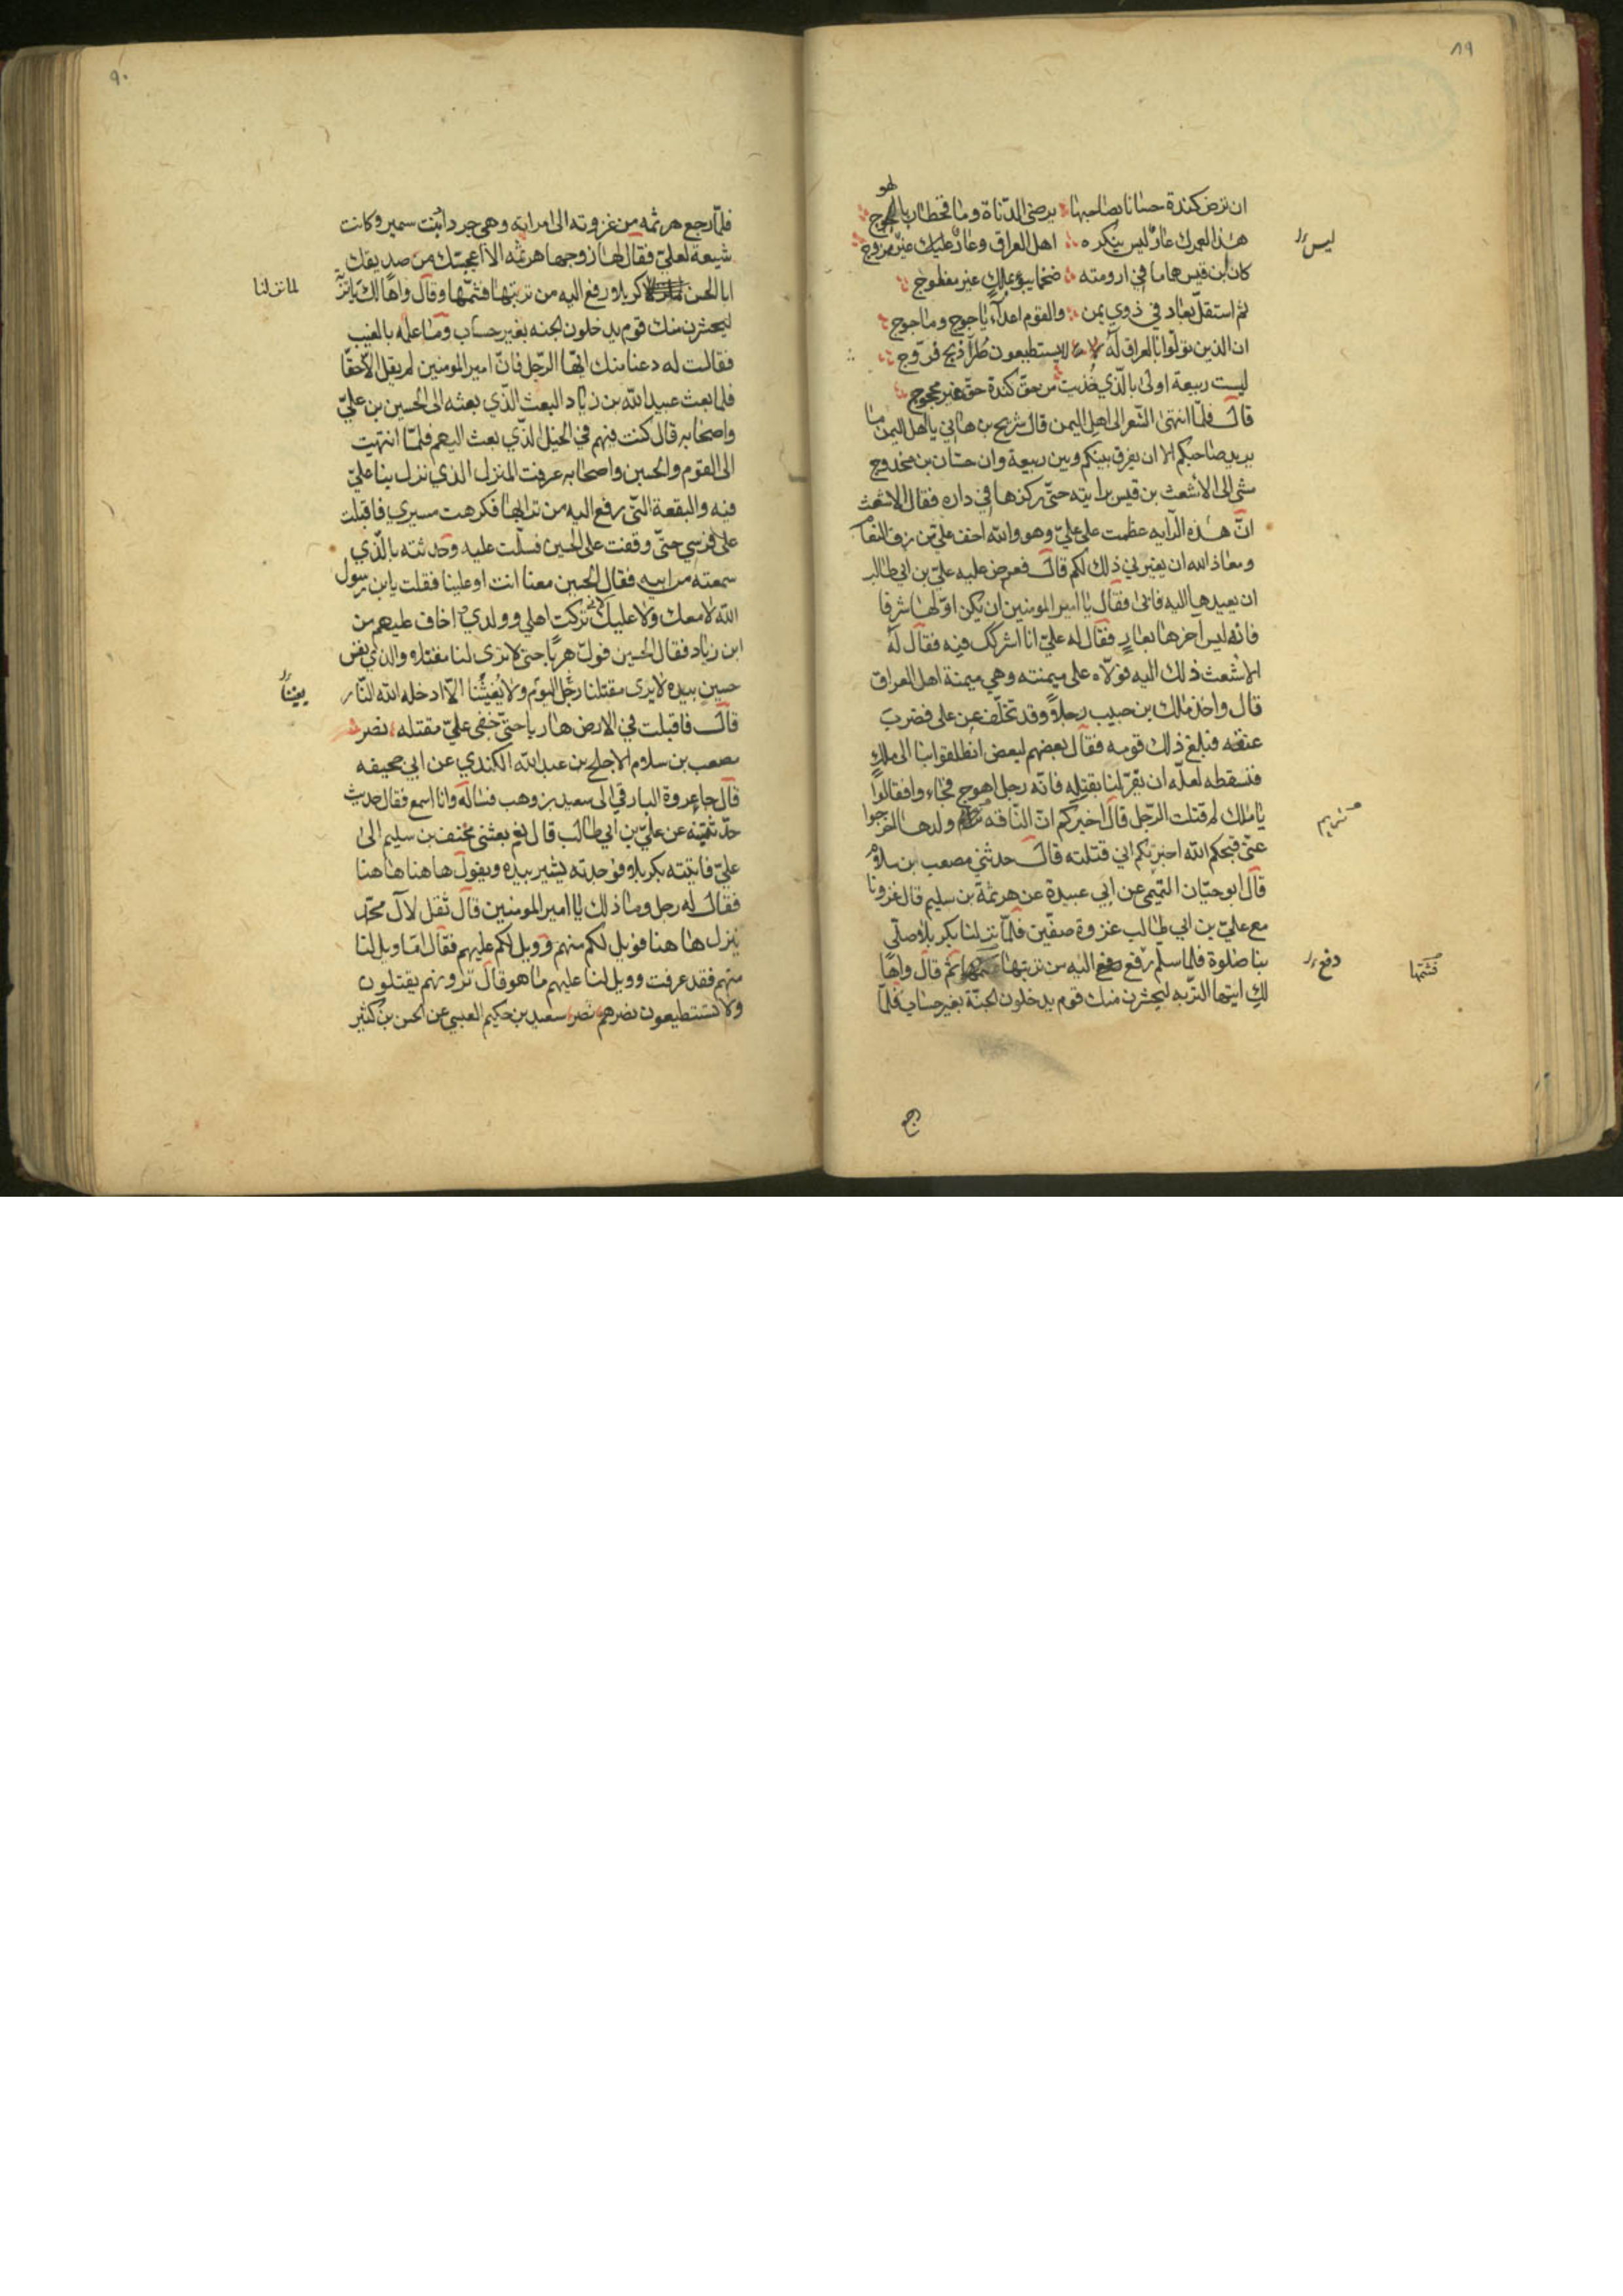 ٨٩
ان ترض كندة حسانا بصاحبها يرضى الدناة وما قحطان بالهوج
لهو
هذا لعمرك عار ليس ينكره اهل العراق وعار عليك غير ممزوج
ليس
كان ابن قيس هماما في ارومته ضخما يبوء بملك غير مفلوج
ثم استقل بعاد في ذوي يمن والقوم اعداء ياجوج وماجوج
ان الذين تولوا بالعراق له لا يستطيعون طرا ذبح فروج
ليست ربيعة اولى بالذي خذيت من حق كندة حق غير محجوج
قال فلما انتهى الشعر الى اهل اليمن قال شريح بن هاني يا اهل اليمن ما
يريد صاحبكم الا ان يفرق بينكم وبين ربيعة وان حسان بن مخدوج
مشى الى الاشعث بن قيس برايته حتى ركزها في داره فقال الاشعث
ان هذه الرايه عظمت على علي وهو والله اخف علي من زف النعام
ومعاذ الله ان يغيرني ذلك لكم قال فعرض عليه علي بن ابي طالب
ان يعيدها اليه فابى فقال يا امير المومنين ان يكن اولها شرفا
فانه ليس آخرها بعار فقال له علي انا اشركك فيه فقال له
الاشعث ذلك اليه فولاه على ميمنته وهي ميمنة اهل العراق
قال واخذ مالك بن حبيب رجلا وقد تخلف عن على فضرب
عنقه فبلغ ذلك قومه فقال بعضهم لبعض انطلقوا بنا الى ملك
فنسقطه لعله ان يقر لنا بقتله فانه رجل اهوج فجاء وا فقالوا
يا مالك لم قتلت الرجل قال اخبركم ان الناقه ولدها اخرجوا
عني قبحكم الله اخبرتكم اني قتلته قال حدثني مصعب بن سلام
قال ابو حيان التميمي عن ابي عبيدة عن هرثمة بن سليم قال غزونا
مع علي بن ابي طالب غزوة صفين فلما نزلنا بكربلا صلى
بنا صلوة فلما سلم رفع اليه من تربتها ثم قال واها
دفع
فشمها
لك ايتها التربه ليحشرن منك قوم يدخلون الجنة بغير حساب فلما
رجع
٩٠
فلما رجع هرثمه من غزوته الى امراته وهي جردا بنت سمير وكانت
شيعة لعلي فقال لها زوجها هرثمه الا اعجبتك من صديقك
ابا الحسن كربلا ورفع اليه من تربتها فشمها وقال واها لك يا تربة
لما نزلنا
ليحشرن منك قوم يدخلون الجنه بغير حساب وما علمه بالغيب
فقالت له دعنا منك ايها الرجل فان امير المومنين لم يقل الا حقا
فلما بعث عبيد الله بن زياد البعث الذي بعثه الى الحسين بن علي
واصحابه قال كنت فيهم في الخيل الذي بعث اليهم فلما انتهيت
الى القوم والحسين واصحابه عرفت المنزل الذي نزل بنا علي
فيه والبقعة التي رفع اليه من ترابها فكرهت مسيري فاقبلت
على فرسي حتى وقفت على الحسين فسلمت عليه وحدثته بالذي
سمعته من ابيه فقال الحسين معنا انت او علينا فقلت يابن رسول
الله لا معك ولا عليك تركت اهلي وولدي اخاف عليهم من
ابن زياد فقال الحسين فول هربا حتى لا ترى لنا مقتلا والذي نفس
حسين بيده لا يرى مقتلنا رجل اليوم ولا يغيثنا الا ادخله الله النار
يعيننا
قال فاقبلت في الارض هاربا حتى خفي علي مقتله نصر
مصعب بن سلام الاجلح بن عبد الله الكندي عن ابي جحيفه
قال جا عروة البارقي الى سعيد بن وهب فساله وانا اسمع فقال حديث
حدثتنيه عن علي بن ابي طالب قال نعم بعثني مخنف بن سليم الى
علي فاتيته بكربلا فوجدته يشير بيده ويقول هاهنا هاهنا
فقال له رجل وما ذلك يا امير المومنين قال ثقل لال محمد
ينزل هاهنا فويل لكم منهم وويل لكم عليهم فقال اما ويل لنا
منهم فقد عرفت وويل لنا عليهم ما هو قال ترونهم يقتلون
ولا تستطيعون نصرهم نصر سعيد بن حكيم العبسي عن الحسن بن كثير